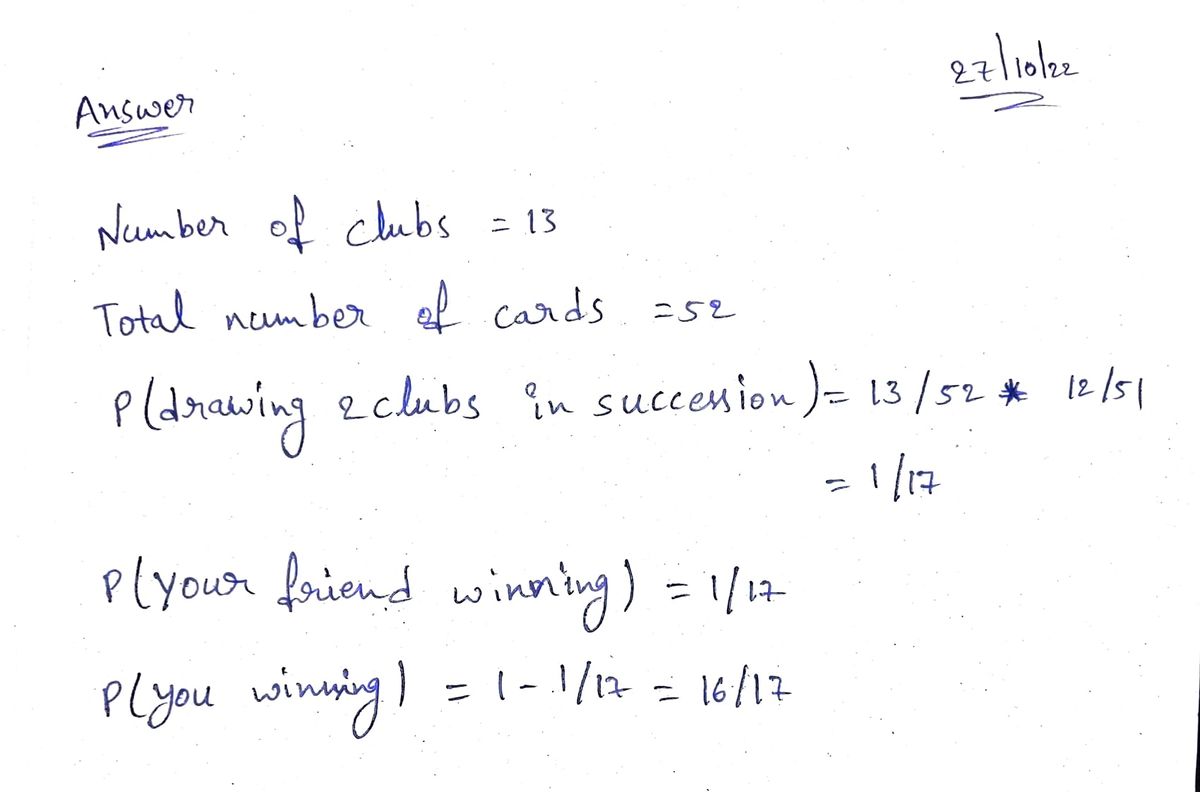 27/10/22
Answer
Number of clubs = 13
Total number of cards = 52
P(drawing 2 clubs in succession) = 13/52 * 12/51
= 1/17
P(your friend winning) = 1/17
P(you winning) = 1 - 1/17 = 16/17